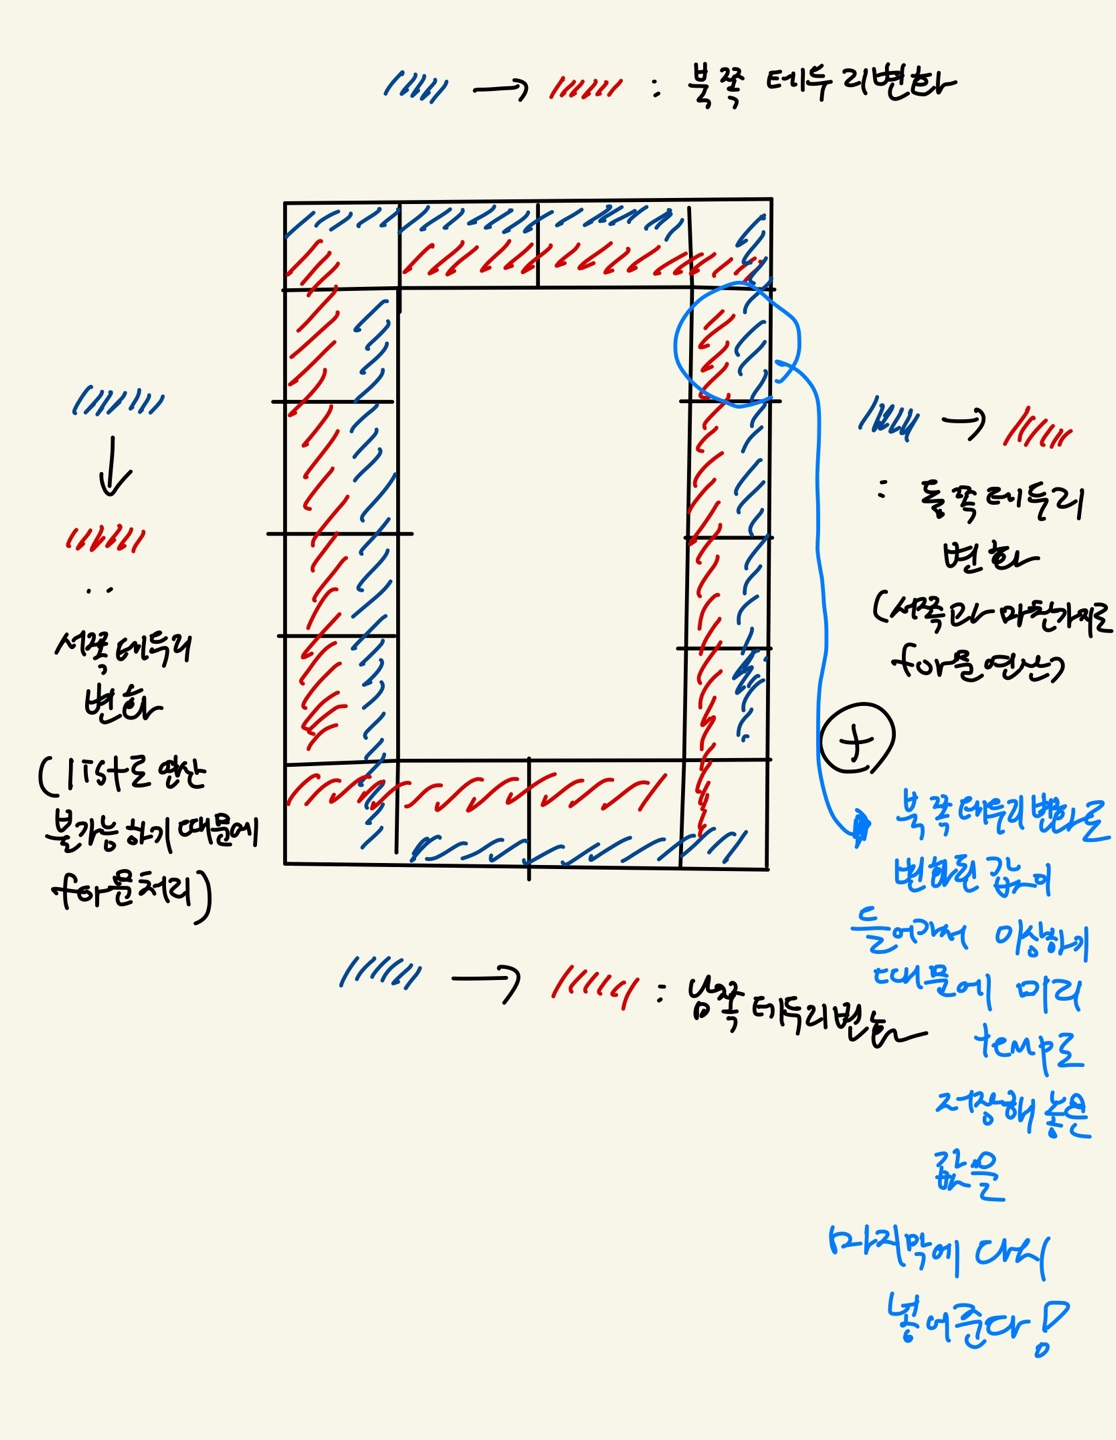 → : 북쪽 테두리변화
↓
:
서쪽 테두리
변화
(list로 연산
불가능하기 때문에
for문 처리)
→
: 동쪽테두리
변화
(서쪽과 마찬가지로
for문 연산)
+
북쪽테두리 변화로
변화된 값이
들어가서 이상하기
때문에 미리
temp로
저장해 놓은
값을
마지막에 다시
넣어준다!
→ : 남쪽 테두리변화